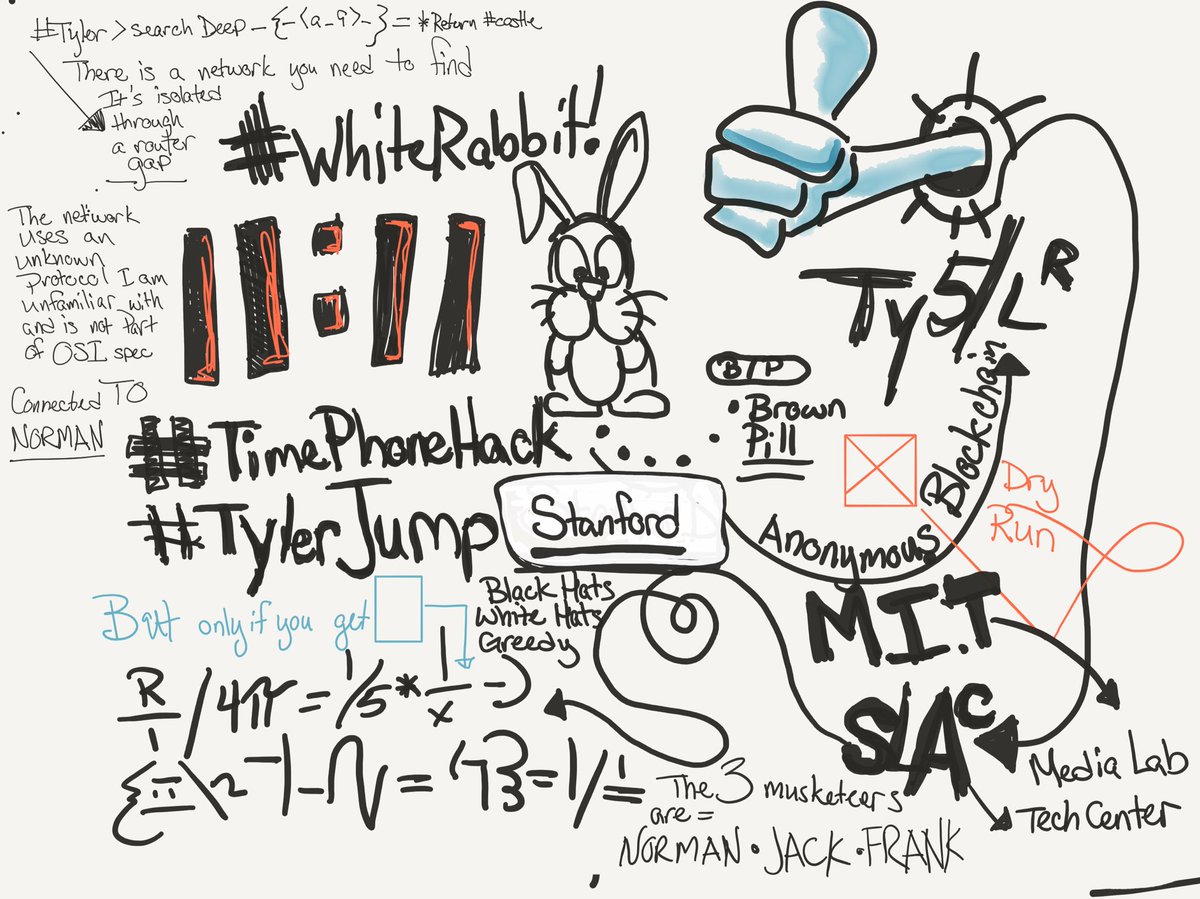 #Tyler > search Deep _ {-<a_9>_-} = *Return #castle
There is a network you need to find
It's isolated
through
a router
gap
#WhiteRabbit!
The network
uses an
unknown
protocol I am
unfamiliar with
and is not part
of OSI spec
Connected TO
NORMAN
11:11
Ty5/LR
BTP
• Brown
• Pill
#TimePhoneHack
#TylerJump
Stanford
Anonymous Blockchain
Dry
Run
M.I.T
Black Hats
White Hats
Greedy
But only if you get
R/4π = 1/5 * 1/x
SLAC
Media Lab
Tech Center
The 3 musketeers
are =
NORMAN • JACK • FRANK